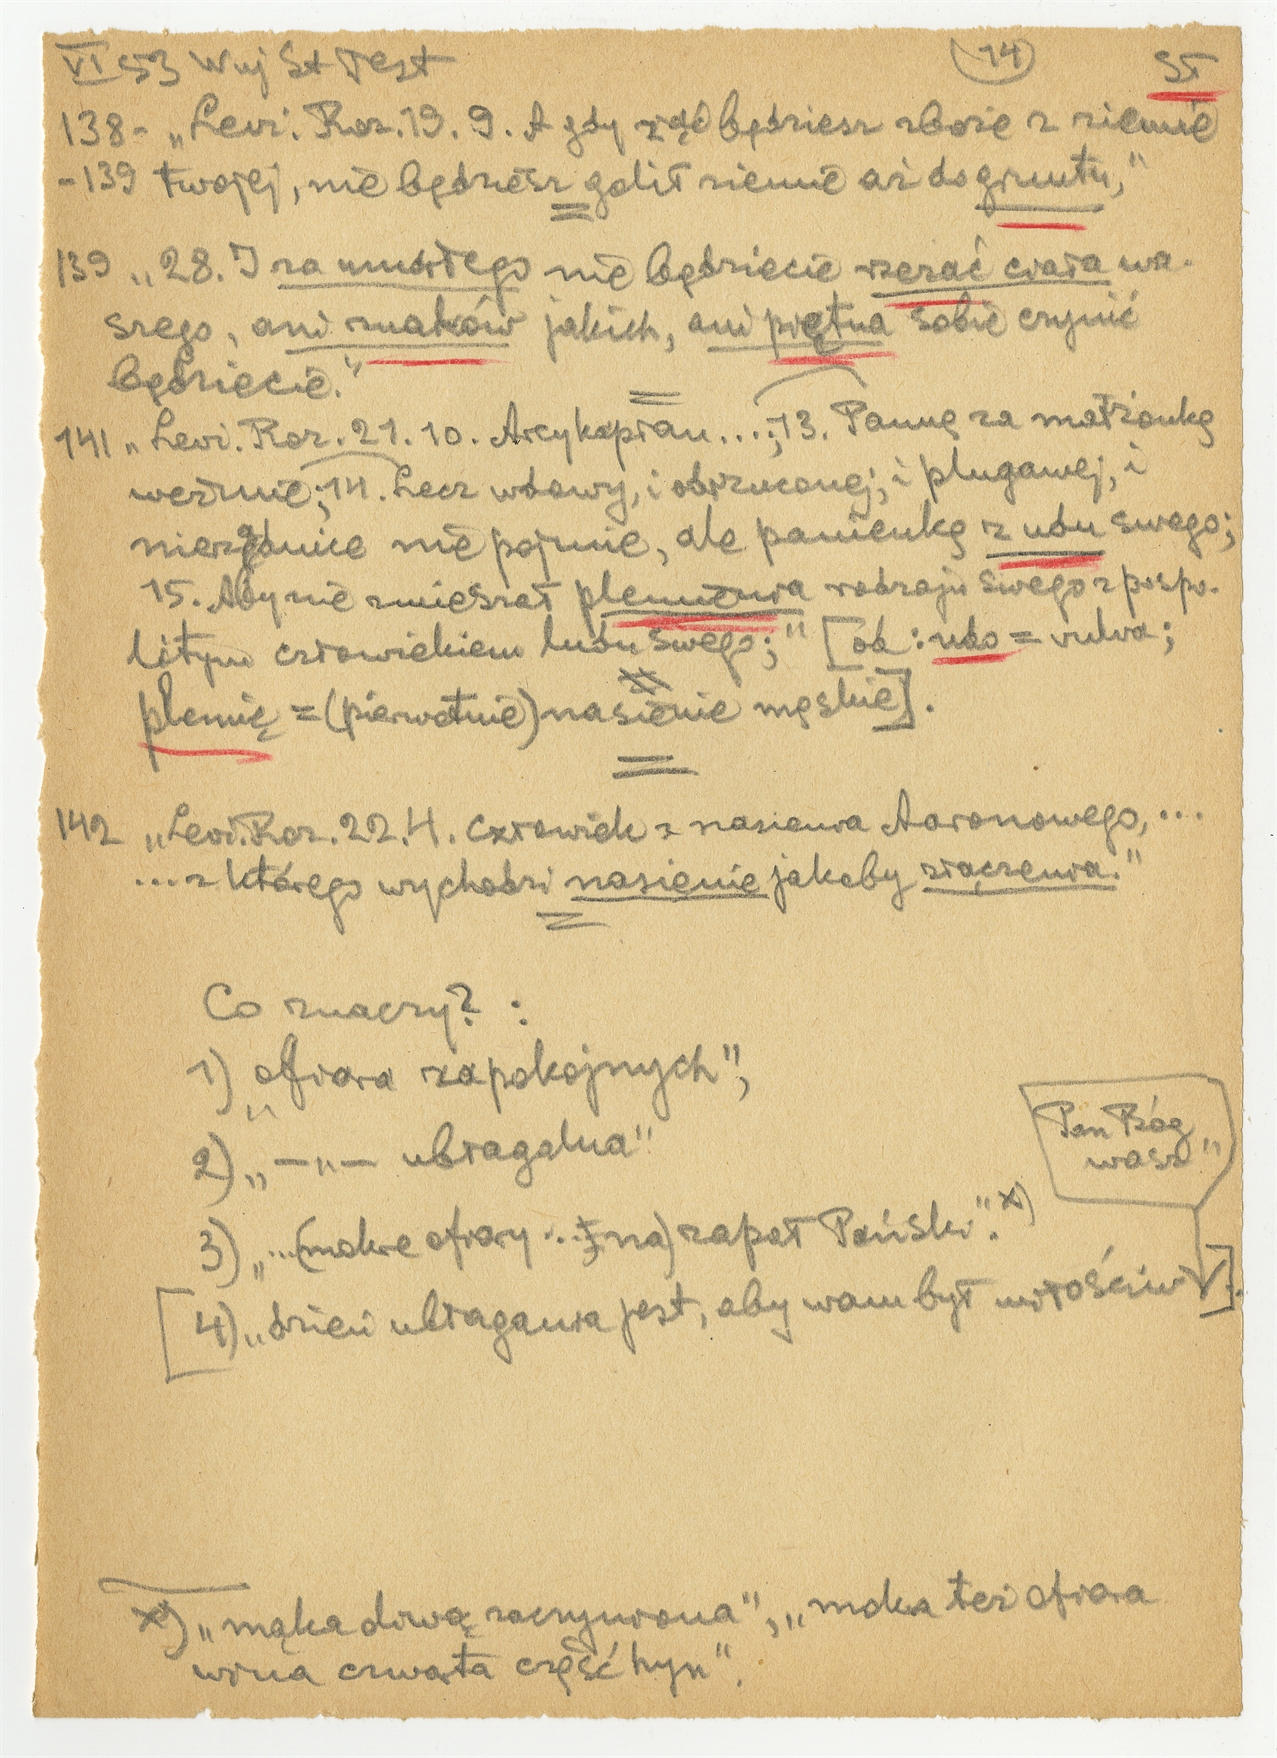 VI 53 Wuj St Test (14) ST
138- „Levi. Roz. 19. 9. A gdy żąć będziesz zboże z ziemie
-139 twojej, nie będziesz golił ziemie aż do gruntu,"
139 „28. I za umarłego nie będziecie rzezać ciała wa-
szego, ani znaków jakich, ani piętna sobie czynić
będziecie."
141 „Levi. Roz. 21. 10. Arcykapłan...; 13. Pannę za małżonkę
weźmie; 14. Lecz wdowy, i odrzuconej, i plugawej, i
nierządnice nie pojmie, ale panienkę z udu swego;
15. Aby nie zmieszał plemienia rodzaju swego z pospo-
litym człowiekiem ludu swego;" [od: udo = vulva;
plemię = (pierwotnie) nasienie męskie].
142 „Levi. Roz. 22. 4. Człowiek z nasienia Aaronowego, ...
... z którego wychodzi nasienie jakoby złączenia."
Co znaczy? :
1) „ofiara zapokojnych",
2) „—„— ubłagalna"
3) „...(mokre ofiary ... na) zapał Pański". x)
Pan Bóg
wasz"
[4) „dzień ubłagania jest, aby wam był miłościw V].
x) „mąka oliwą zaczyniona", „mokra też ofiara
wina czwarta część hyn".